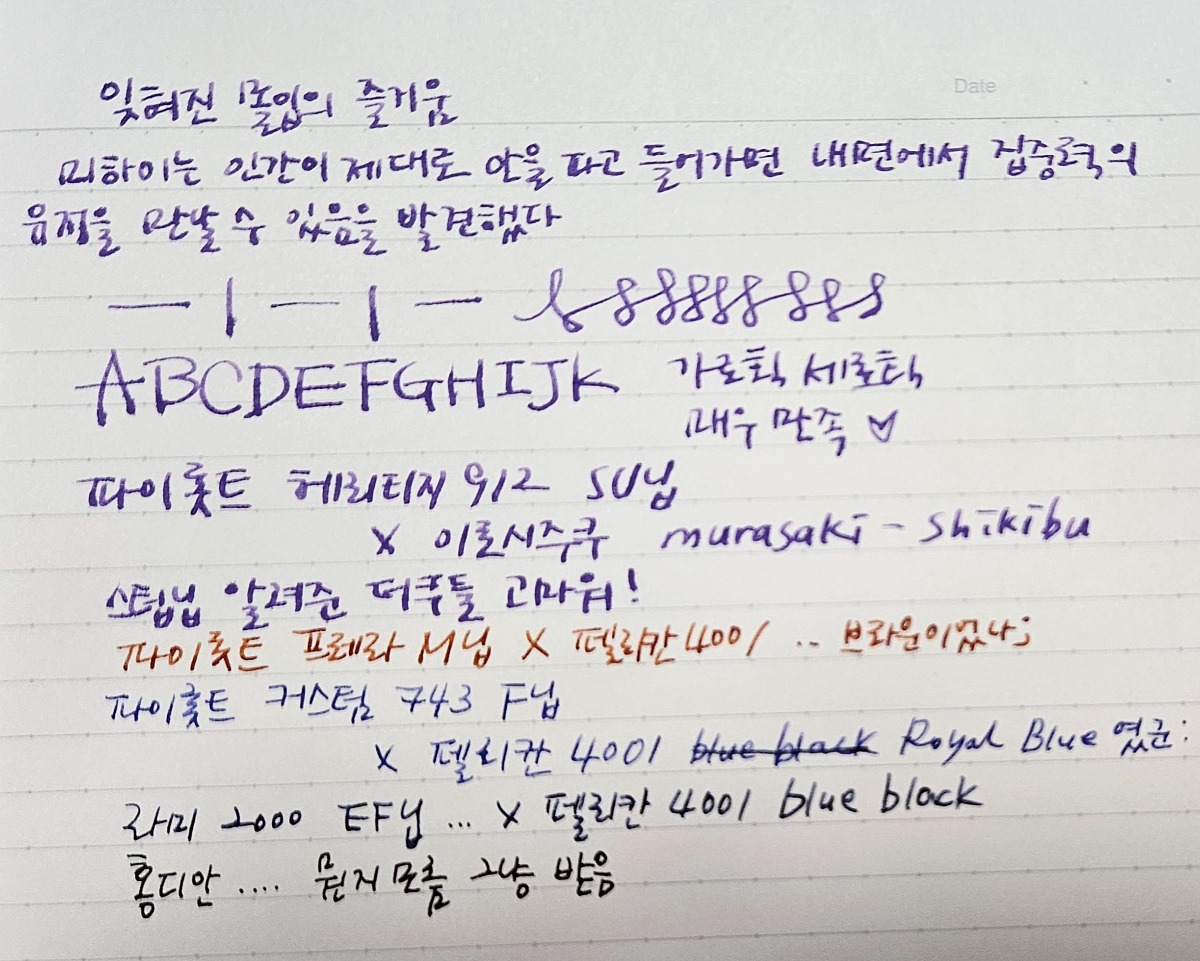 Date
잊혀진 몰입의 즐거움
미하이는 인간이 제대로 안을 파고 들어가면 내면에서 집중력의
유정을 만날 수 있음을 발견했다
ABCDEFGHIJK 가로획 세로획
매우 만족 ♡
파이롯트 헤리티지 912 SU닙
x 이로시주쿠 murasaki - shikibu
스텁닙 알려준 더쿠들 고마워!
파이롯트 프레라 M닙 x 펠리칸 4001 .. 브라운이었나;
파이롯트 커스텀 743 F닙
x 펠리칸 4001 blue black Royal Blue 였군:
라미 2000 EF닙 ... x 펠리칸 4001 blue black
홍디안 .... 뭔지 모름 그냥 받음